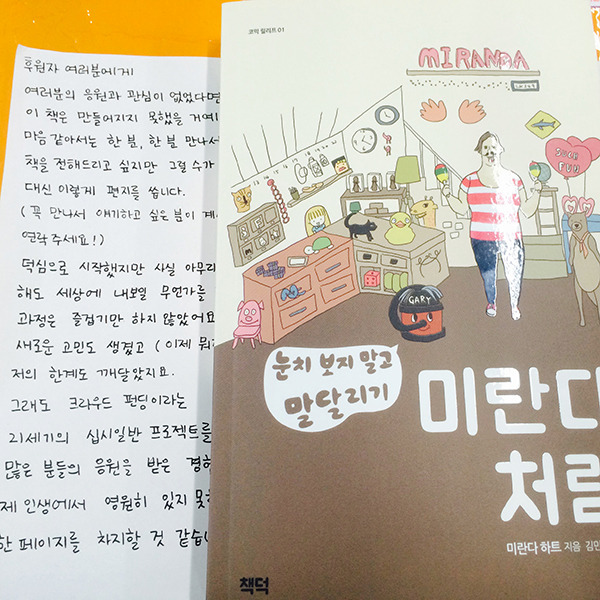 후원자 여러분에게
여러분의 응원과 관심이 없었다면
이 책은 만들어지지 못했을 거예
마음 같아서는 한 분, 한 분 만나서
책을 전해드리고 싶지만 그럴 수가
대신 이렇게 편지를 씁니다.
(꼭 만나서 얘기하고 싶은 분이 계
연락 주세요!)
덕심으로 시작했지만 사실 아무리
해도 세상에 내보일 무언가를
과정은 즐겁기만 하지 않았어요
새로운 고민도 생겼고 (이제 뭐
저의 한계도 깨달았지요.
그래도 크라우드 펀딩이라는
21세기의 십시일반 프로젝트를
많은 분들의 응원을 받은 경허
제 인생에서 영원히 잊지 못
한 페이지를 차지할 것 같습니
코믹 릴리프 01
MIRANDA
SUCH
FUN
GARY
눈치 보지 말고
말달리기
미란다
처럼
미란다 하트 지음 김민
책덕